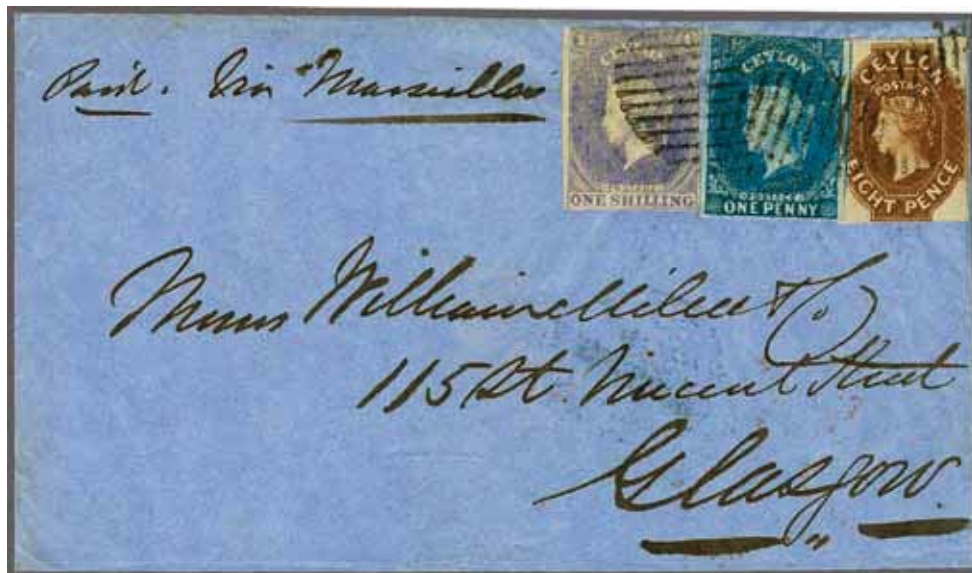 Paid. Via "Marseilles
CEYLON
POSTAGE
ONE SHILLING
CEYLON
POSTAGE
ONE PENNY
CEYLON
POSTAGE
EIGHT PENCE
Messrs William Milne & Co.
115 St. Vincent Street
Glasgow